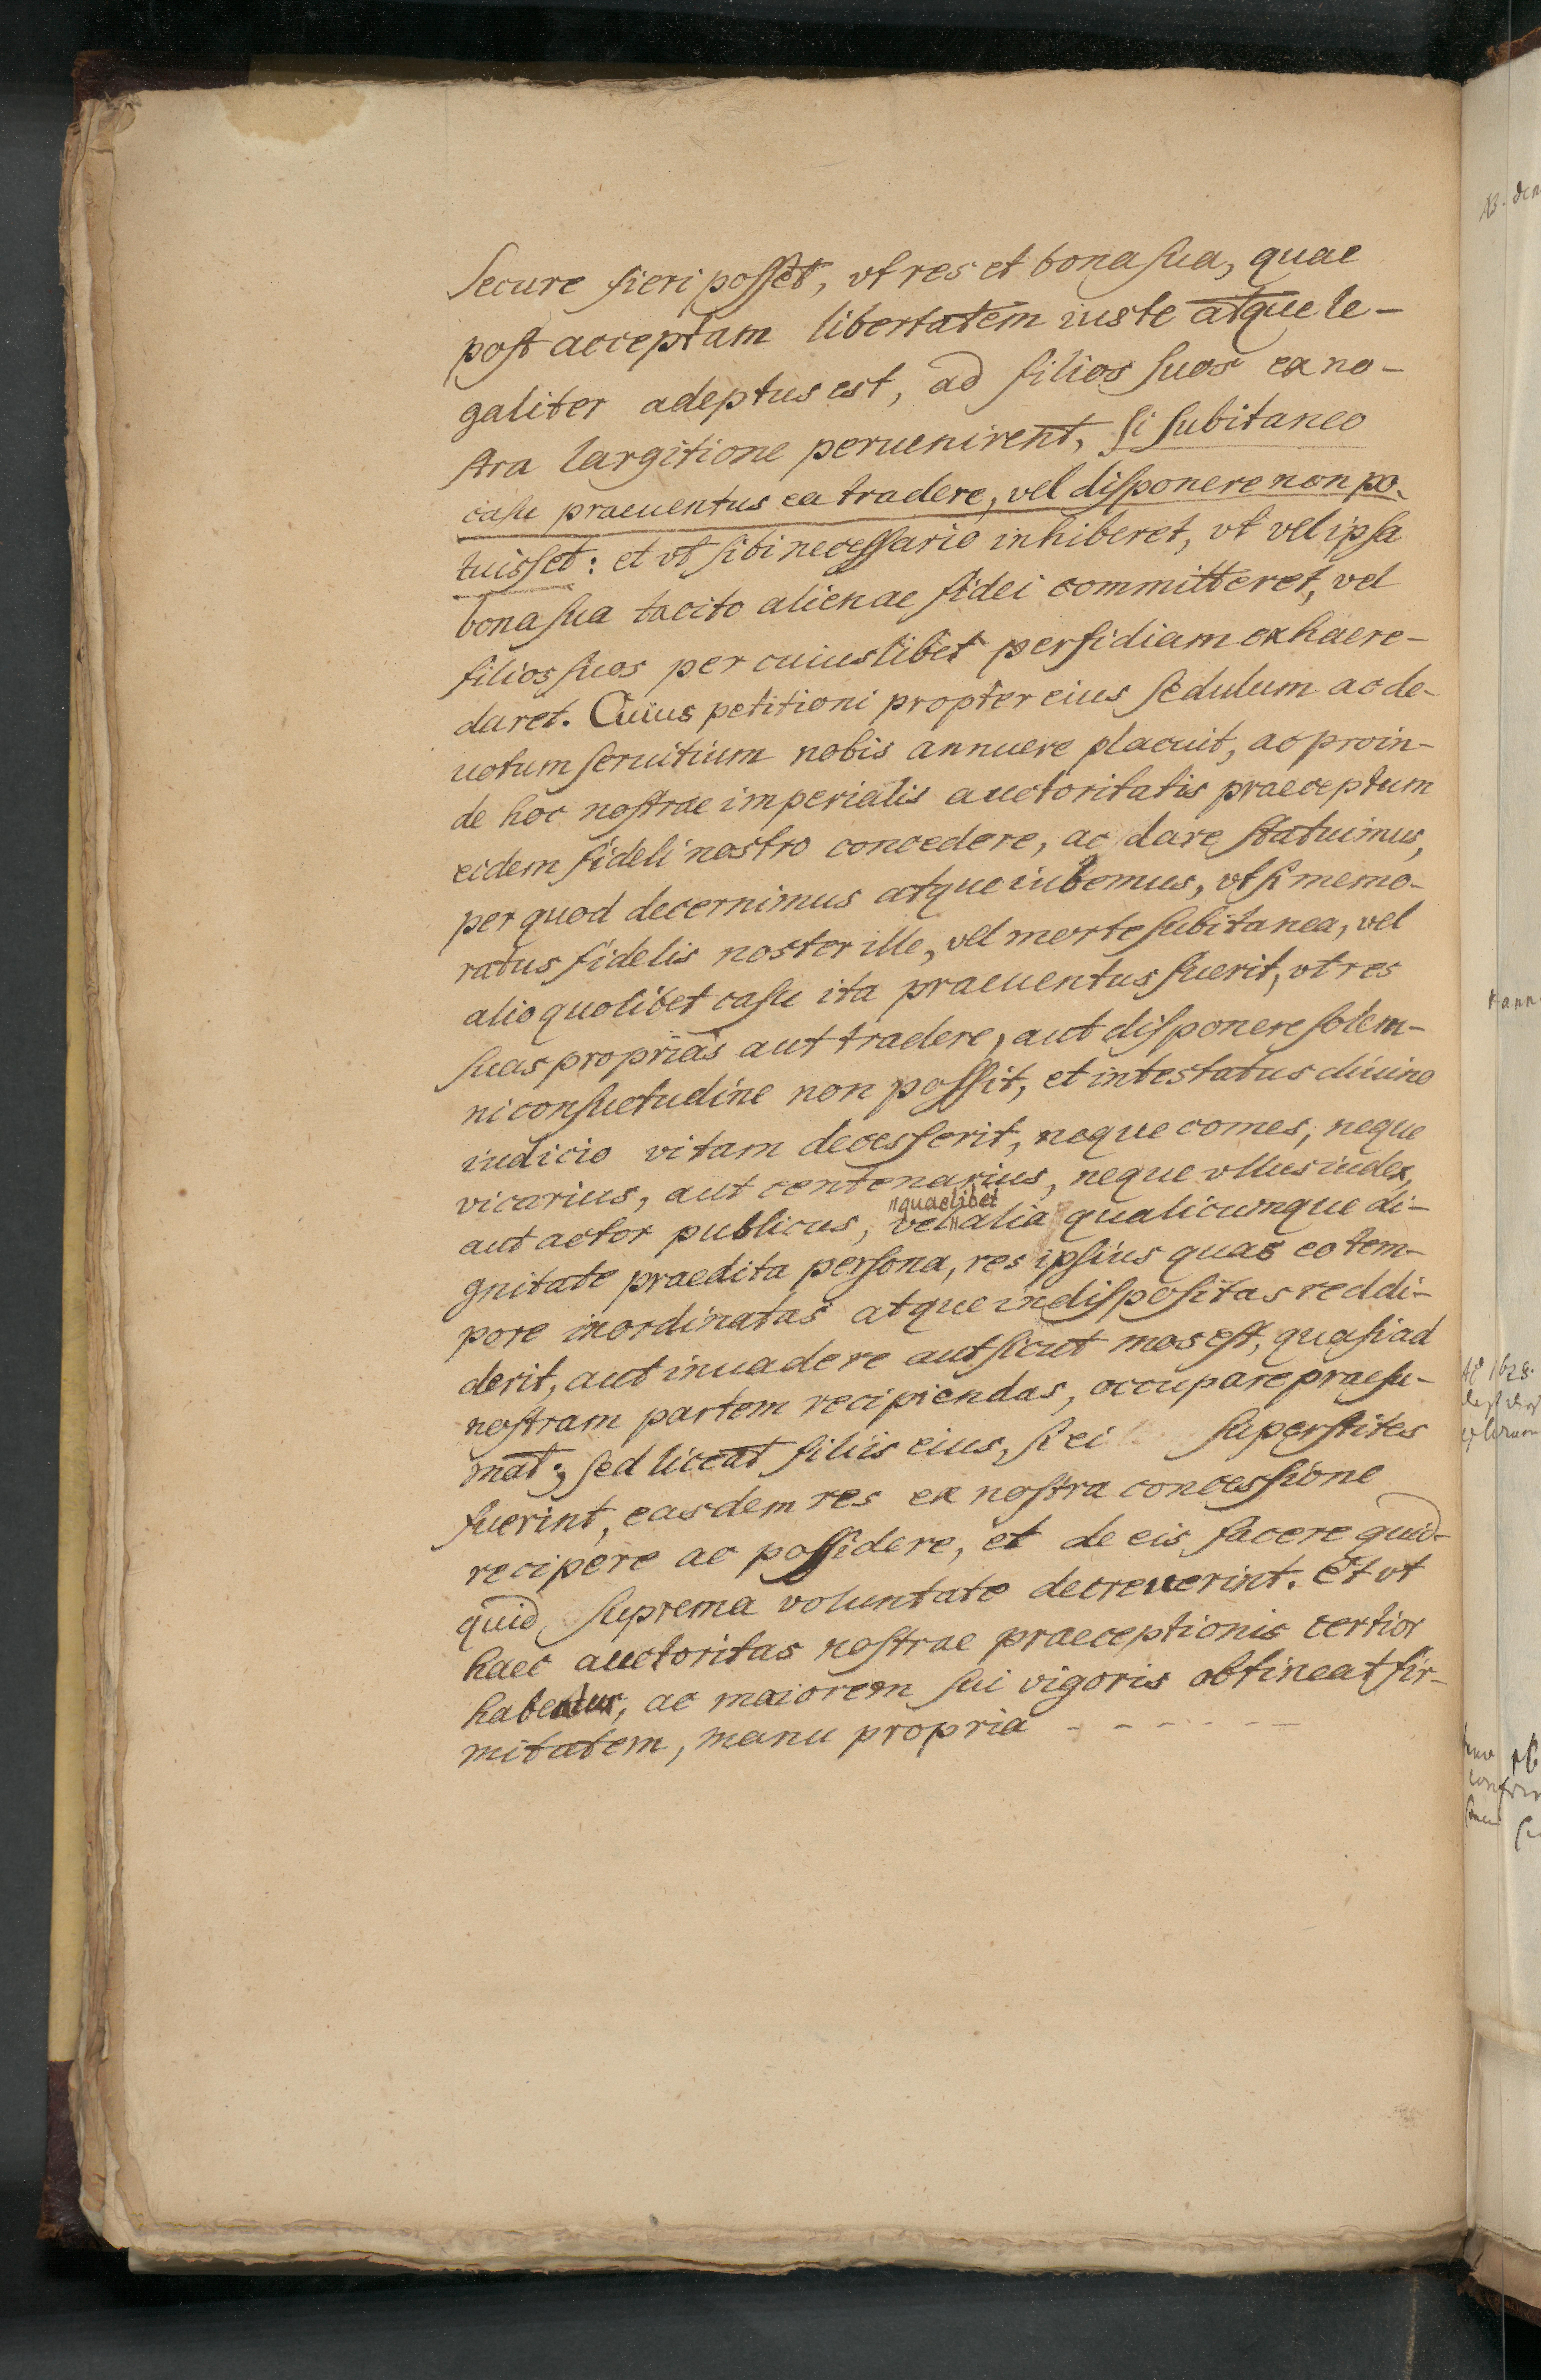 secure fieri posset, vt res et bona sua, quae
post acceptam libertatem iuste atque le-
galiter adeptus est, ad filios suos ex no-
stra largitione peruenirent, si subitaneo
casu praeuentus ea tradere, vel disponere non po-
tuisset: et vt sibi necessario inhiberet, vt vel ipsa
bona sua tacito alienae fidei committeret, vel
filios suos per cuiuslibet perfidiam exhaere-
daret. Cuius petitioni propter eius sedulum ac de-
uotum seruitium nobis annuere placuit, ac proin-
de hoc nostrae imperialis auctoritatis praeceptum
eidem fideli nostro concedere, ac dare statuimus,
per quod decernimus atque iubemus, vt si memo-
ratus fidelis noster ille, vel morte subitanea, vel
alio quolibet casu ita praeuentus fuerit, vt res
suas proprias aut tradere, aut disponere solem-
ni consuetudine non possit, et intestatus diuino
iudicio vitam decesserit, neque comes, neque
vicarius, aut centenarius, neque vllus iudex,
quaelibet
aut actor publicus, vel alia qualicumque di-
gnitate praedita persona, res ipsius quas eo tem-
pore inordinatas atque indispositas reddi-
derit, aut inuadere aut sicut mos est, quasi ad
nostram partem recipiendas, occupare praesu-
mat; sed liceat filiis eius, si ei superstites
fuerint, easdem res ex nostra concessione
recipere ac possidere, et de eis facere quid-
quid suprema voluntate decreuerint. Et vt
haec auctoritas nostrae praeceptionis certior
habeatur, ac maiorem sui vigoris obtineat fir-
mitatem, manu propria - - - - - - -